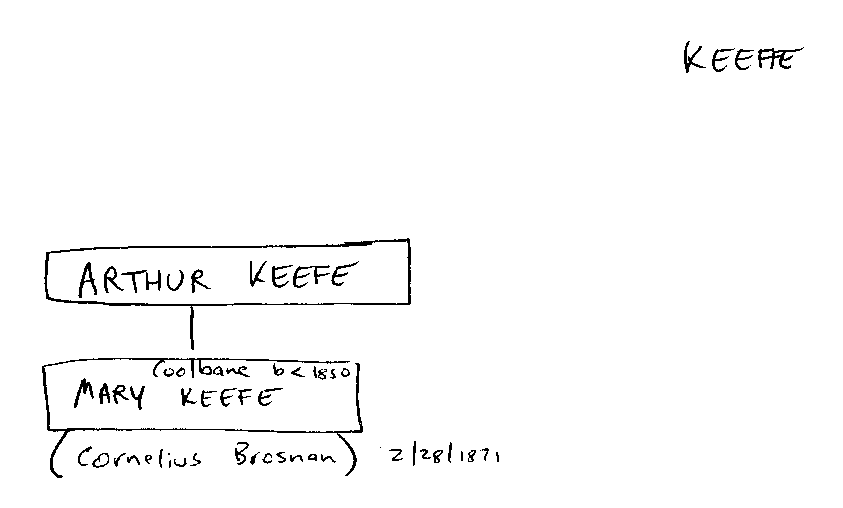 KEEFE
ARTHUR KEEFE
Coolbane b < 1850
MARY KEEFE
(Cornelius Brosnan) 2/28/1871